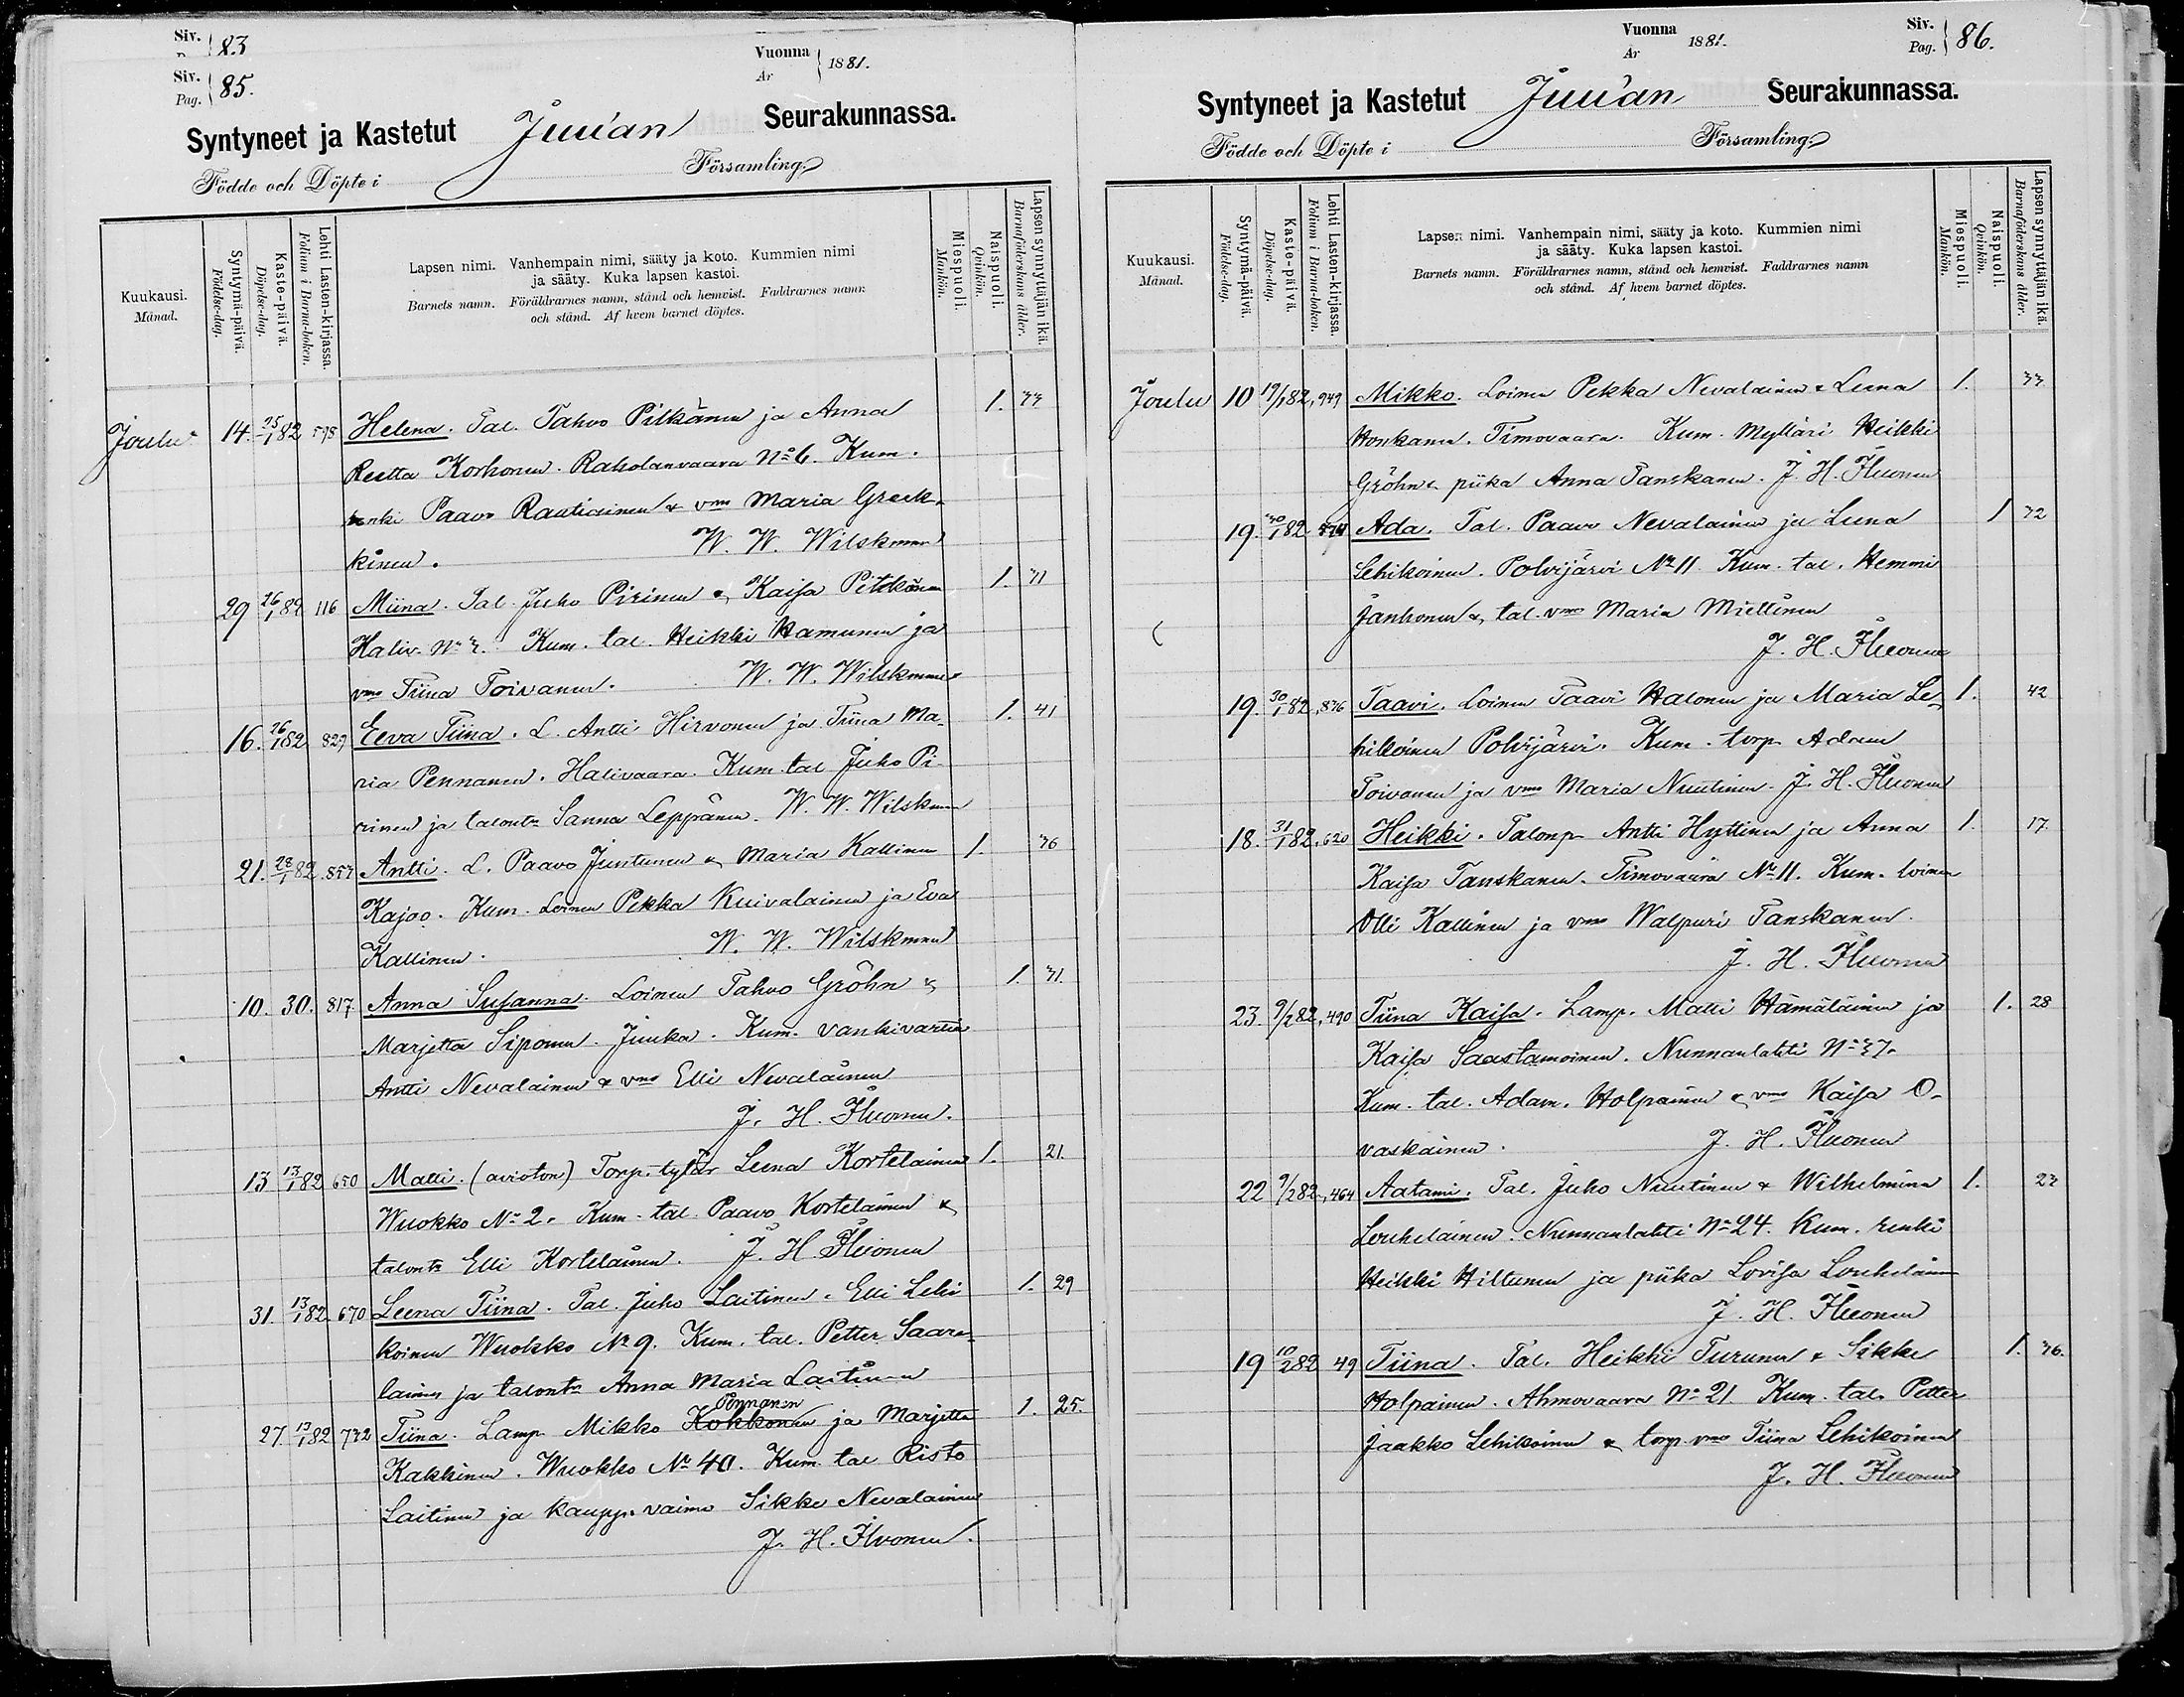 Siv. 83
Siv. Pag. 85.
Vuonna År 1881.
Syntyneet ja Kastetut Juuan Seurakunnassa.
Födde och Döpte i Församling
Kuukausi. Månad.
Syntymä-päivä. Födelse-dag.
Kaste-päivä. Döpelse-dag.
Lehti Lasten-kirjassa. Folium i Barna-boken.
Lapsen nimi. Vanhempain nimi, sääty ja koto. Kummien nimi
ja sääty. Kuka lapsen kastoi.
Barnets namn. Föräldrarnes namn, stånd och hemvist. Faddrarnes namn
och stånd. Af hvem barnet döptes.
Miespuoli. Mankön.
Naispuoli. Qvinkön.
Lapsen synnyttäjän ikä. Barnaföderskans ålder.
Joulu 14. 25/1 82 598 Helena. Tal. Tahvo Pitkänen ja Anna 1. 33
Reetta Korhonen. Raholanvaara No 6. Kum.
renki Paavo Rautiainen & vmo Maria Greck-
kinen. W. W. Wilskman
29 26/1 82 116 Miina. Tal. Juho Pirinen & Kaisa Pitkänen 1. 31
Haliv. No 2. Kum. tal. Heikki Hamunen ja
vmo Tiina Toivanen. W. W. Wilskman
16. 26/1 82 829 Eeva Tiina. L. Antti Hirvonen ja Tiina Ma- 1. 41
ria Pennanen. Halivaara. Kum. tal Juho Pi-
rinen ja talontr Sanna Leppänen. W. W. Wilskman
21. 28/1 82. 853 Antti. L. Paavo Juntunen & Maria Kallinen 1. 36
Kajoo. Kum. Loinen Pekka Kuivalainen ja Eva
Kallinen. W. W. Wilskman
10. 30. 817 Anna Susanna. Loinen Tahvo Gröhn & 1. 31.
Marjetta Siponen. Juuka. Kum. vankivartia
Antti Nevalainen & vmo Elli Nevalainen
J. H. Ihvonen.
13 13/1 82 650 Matti. (avioton) Torp. tytär Leena Kortelainen 1. 21.
Wuokko No 2. Kum. tal. Paavo Kortelainen &
talontr Elli Kortelainen. J. H. Ihvonen
31. 13/1 82. 670 Leena Tiina. Tal. Juho Laitinen & Elli Lehi 1. 29
koinen Wuokko No 9. Kum. tal. Petter Saare-
lainen ja talontr Anna Maria Laitinen
Pennanen
27. 13/1 82 732 Tiina. Lamp. Mikko Kokkonen ja Marjetta 1. 25.
Kakkinen. Wuokko No 40. Kum. tal Risto
Laitinen ja kaupp. vaimo Sikke Nevalainen
J. H. Ihvonen.
Vuonna År 1881.
Siv. Pag. 86.
Syntyneet ja Kastetut Juuan Seurakunnassa.
Födde och Döpte i Församling
Kuukausi. Månad.
Syntymä-päivä. Födelse-dag.
Kaste-päivä. Döpelse-dag.
Lehti Lasten-kirjassa. Folium i Barna-boken.
Lapsen nimi. Vanhempain nimi, sääty ja koto. Kummien nimi
ja sääty. Kuka lapsen kastoi.
Barnets namn. Föräldrarnes namn, stånd och hemvist. Faddrarnes namn
och stånd. Af hvem barnet döptes.
Miespuoli. Mankön.
Naispuoli. Qvinkön.
Lapsen synnyttäjän ikä. Barnaföderskans ålder.
Joulu 10 19/1 82, 949 Mikko. Loinen Pekka Nevalainen & Leena 1. 33
Honkanen. Timovaara. Kum. Mylläri Heikki
Gröhn & piika Anna Tanskanen. J. H. Ihvonen
19. 30/1 82 Ada. Tal. Paavo Nevalainen ja Leena 1 32
Lehikoinen. Polvijärvi No 11. Kum. tal. Hemmi
Janhonen & tal. vmo Maria Miettinen
J. H. Ihvonen
19. 30/1 82, 836 Taavi. Loinen Taavi Halonen ja Maria Le- 1. 42
hikoinen Polvijärvi. Kum. torp. Adam
Toivanen ja vmo Maria Nuutinen. J. H. Ihvonen
18. 31/1 82, 620 Heikki. Talonp. Antti Hyttinen ja Anna 1. 17.
Kaisa Tanskanen. Timovaara No 11. Kum. loinen
Olli Kallinen ja vmo Walpuri Tanskanen.
J. H. Ihvonen
23. 9/2 82, 490 Tiina Kaisa. Lamp. Matti Hämäläinen ja 1. 28
Kaisa Saastamoinen. Nunnanlahti No 37.
Kum. tal. Adam. Holpainen & vmo Kaisa O-
vaskainen. J. H. Ihvonen
22 9/2 82, 464 Aatami. Tal. Juho Nuutinen & Wilhelmina 1. 23
Louhelainen. Nunnanlahti No 24. Kum. renki
Heikki Hiltunen ja piika Lovisa Louhelainen
J. H. Ihvonen
19 10/2 82 49 Tiina. Tal. Heikki Turunen & Sikke 1. 36.
Holpainen. Ahmovaara No 21 Kum. tal. Petter
Jaakko Lehikoinen & torp. vmo Tiina Lehikoinen
J. H. Ihvonen